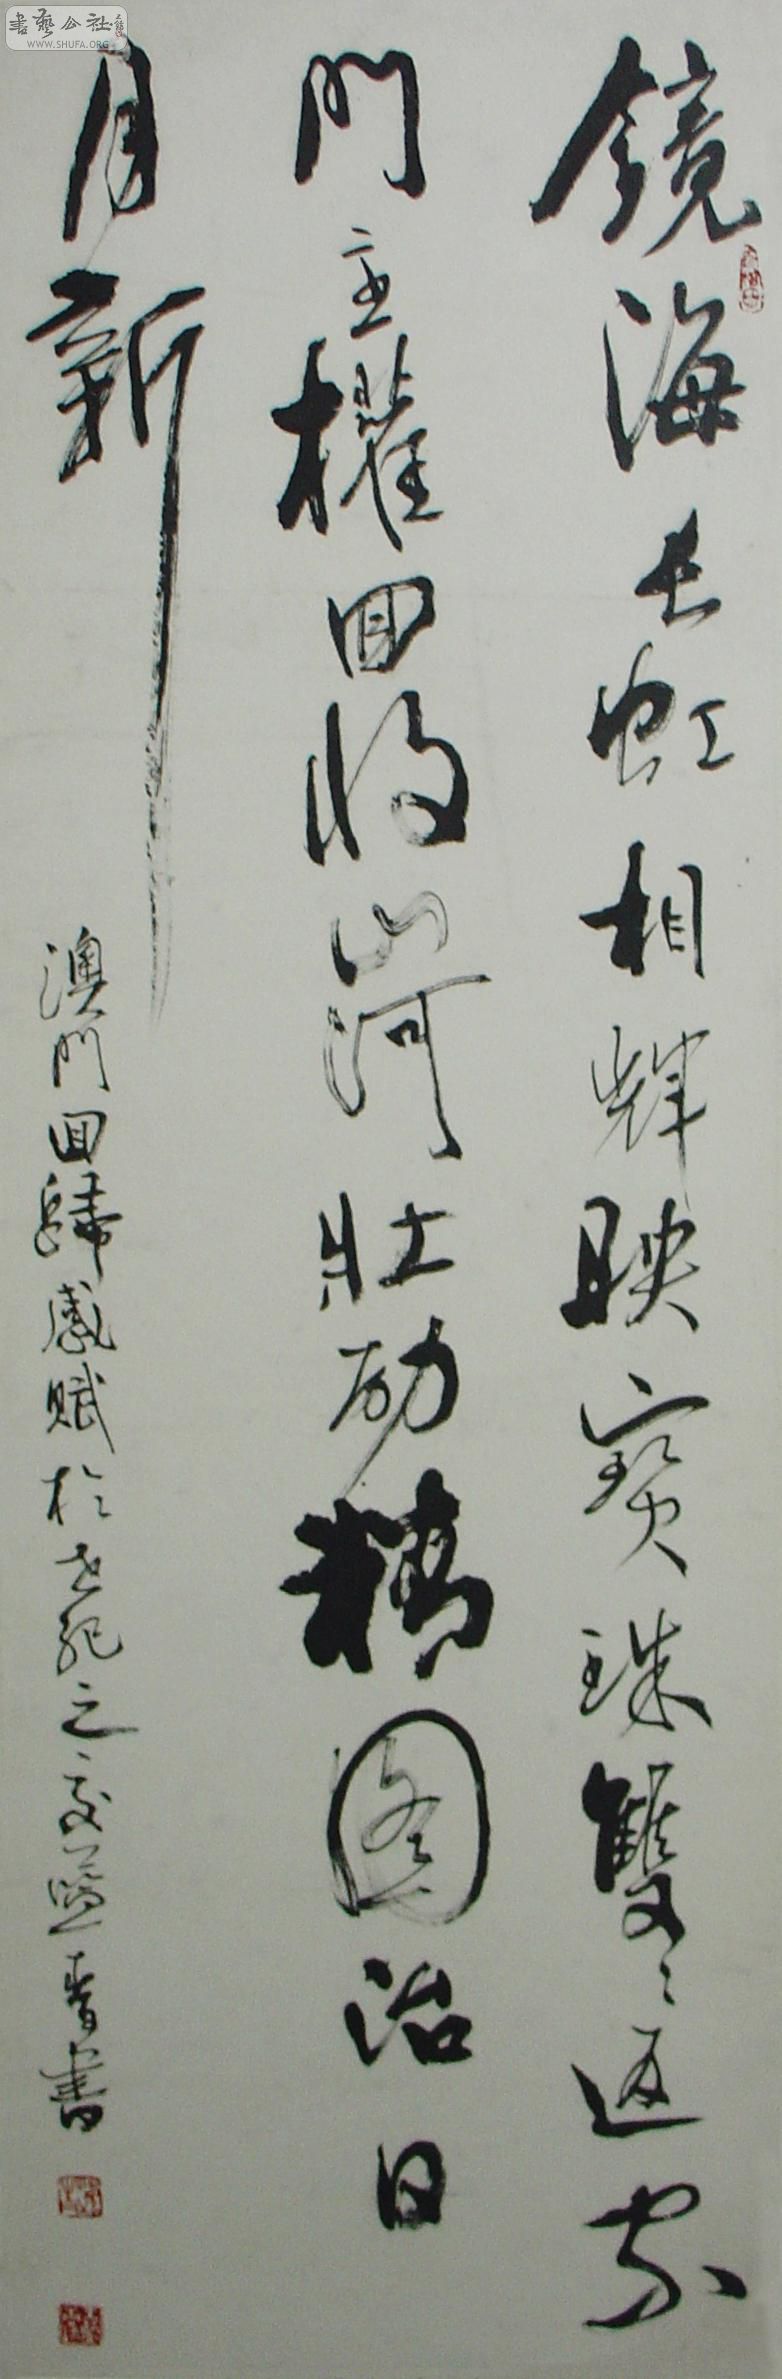 鏡海長虹相輝映寶珠雙雙返家
門主權回收山河壯勵精圖治日
月新
澳門回歸感賦於世紀之交藍青書
書藝公社
WWW.SHUFA.ORG